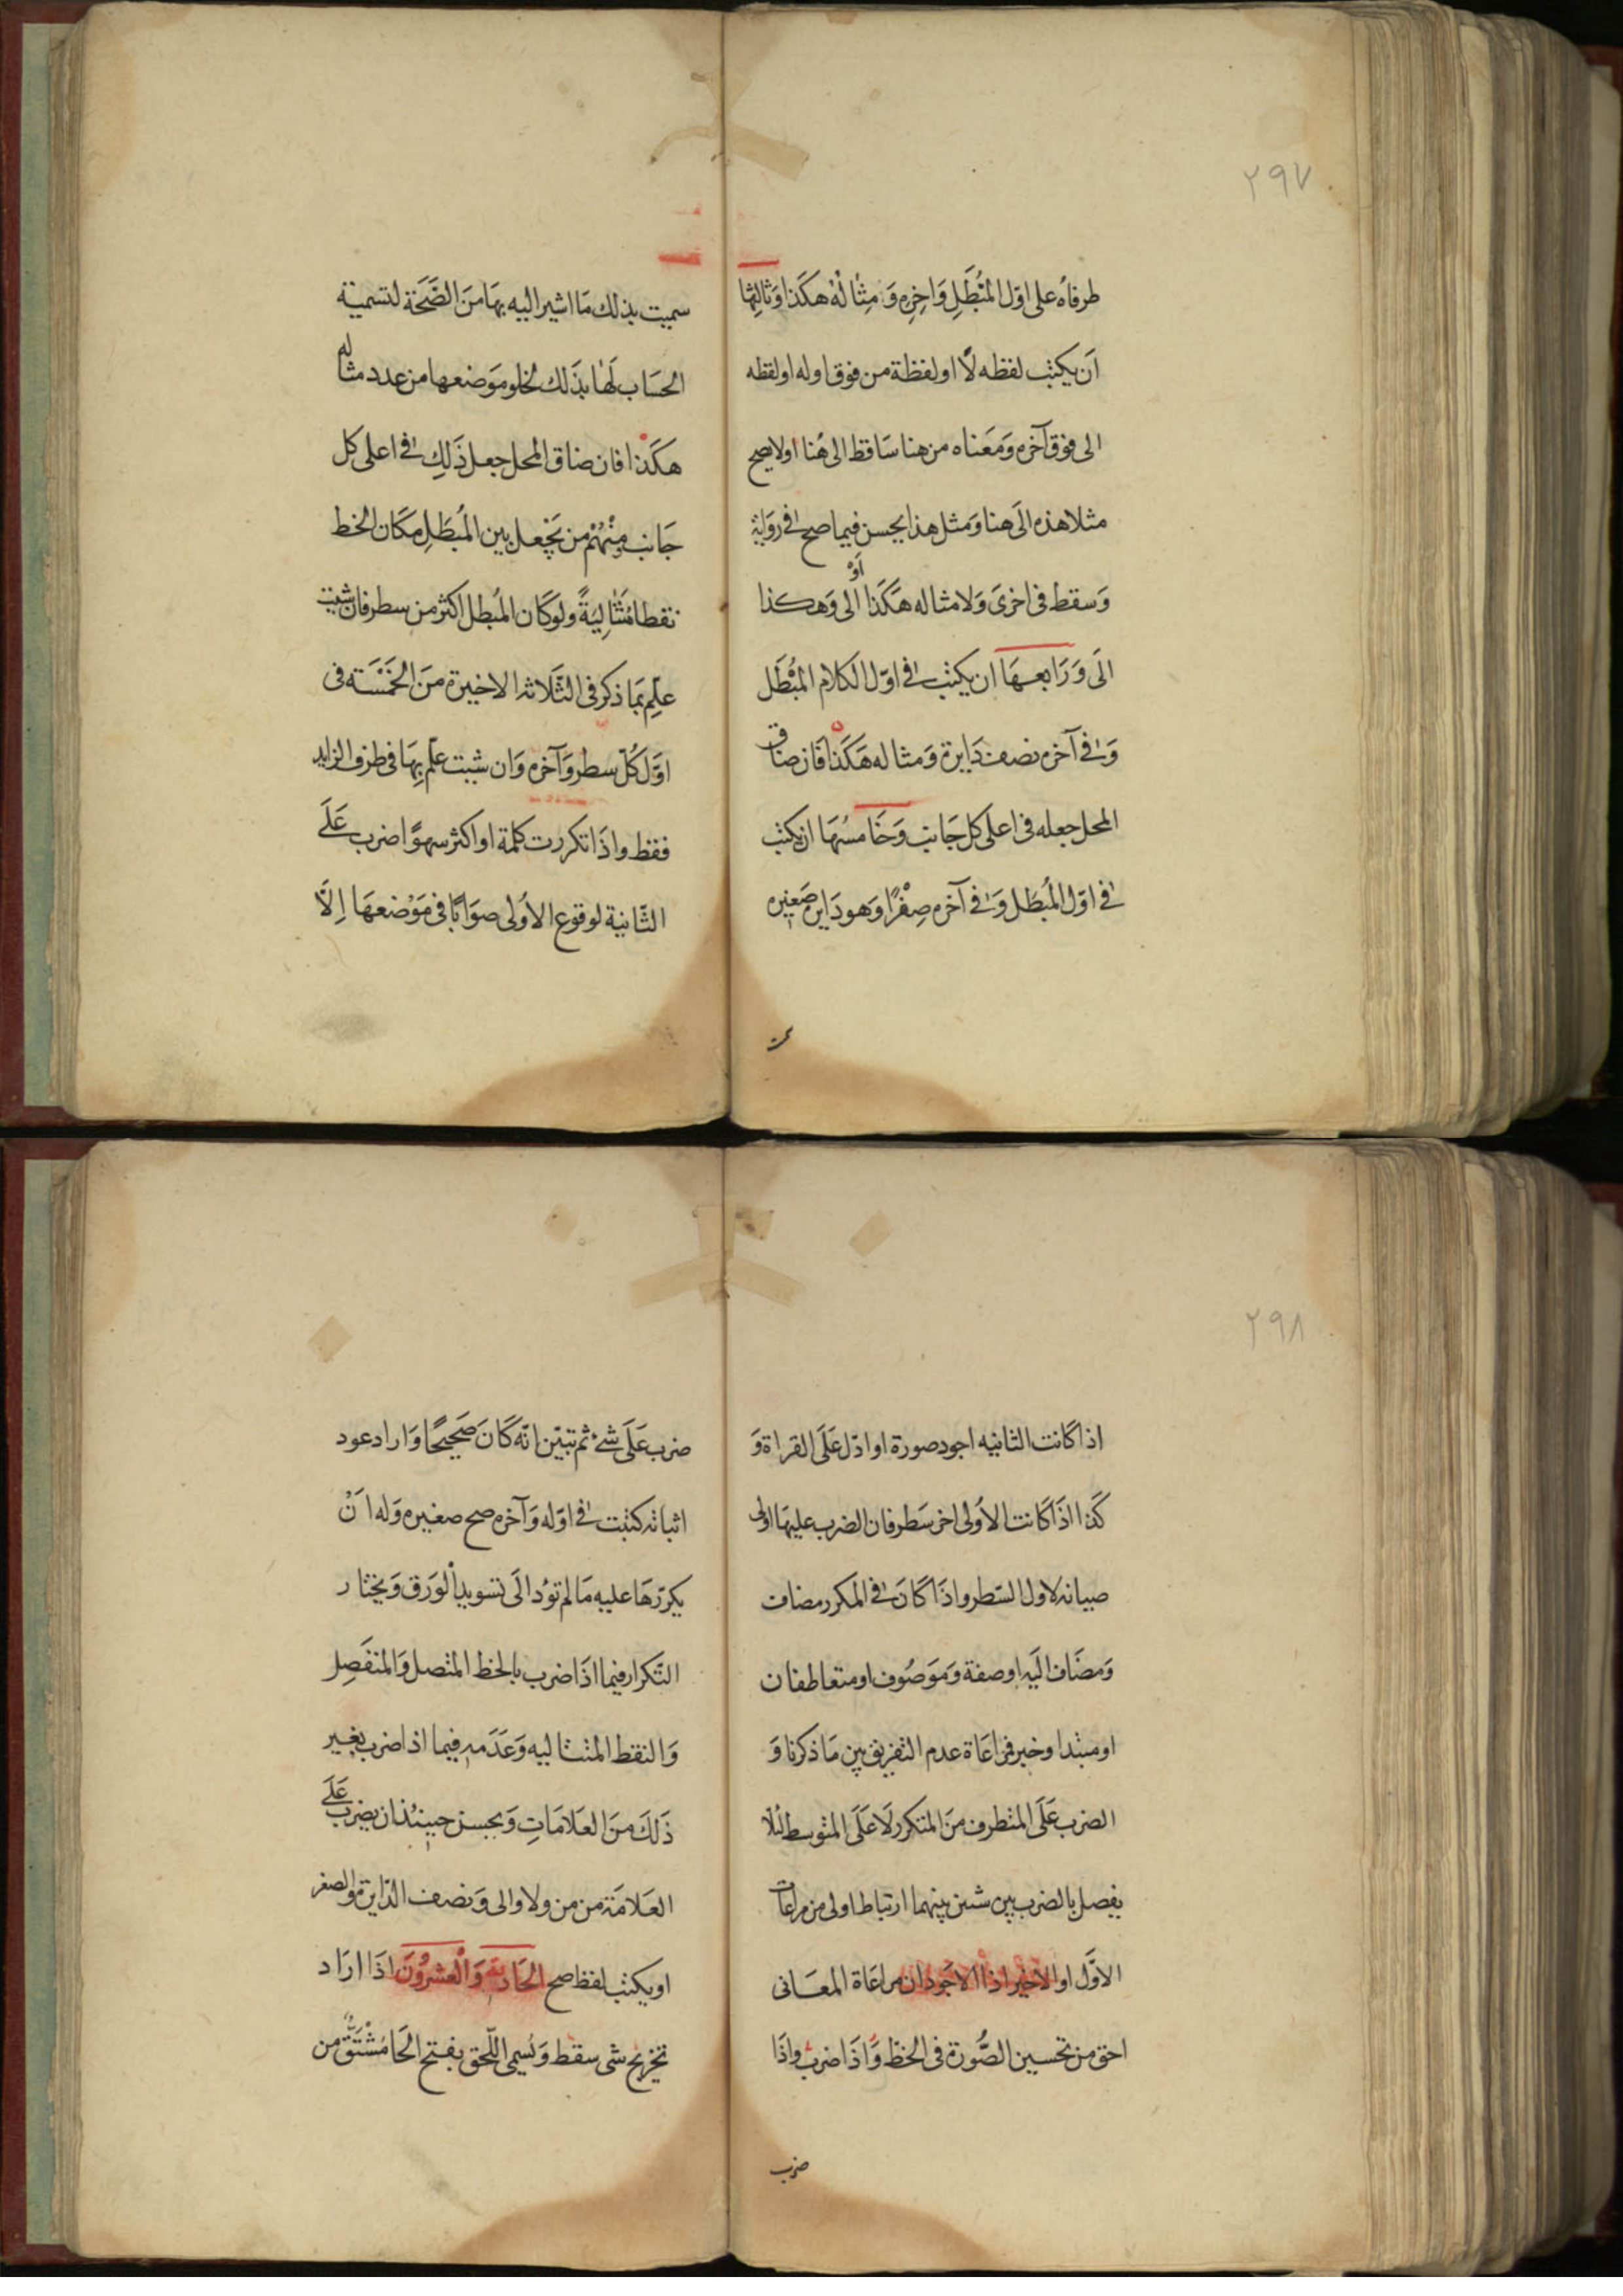 ٢٩٧
طرفاه على اوّل المُبْطَلِ وَاخِرِه وَمِثَالُهُ هكَذا وَثَالِثها
اَن يكتب لفظه لَا او لفظة من فوق اوله او لفظه
الى فوق آخره وَمَعناه من هنا سَاقط الى هُنا اولا يصح
مثلا هذه الَى هنا وَمثل هذا يحسن فيما صح فى روَاية
وَسقط فى اخرىَ وَلا مثاله هَكَذا اَوْ الى وَهكذا
الَى وَرَابعهَا ان يكتب فى اوّل الكلام المُبْطَل
وَفى آخره نصف دَايرة وَمثاله هَكَذا فَان ضاق
المحل جعله فى اعلى كل جَانب وَخَامسُهَا ان يكتب
فى اوّل المُبطَل وَفى آخره صِفْرًا وَهو دَايره صَغيره
سميت بذلك مَا اشير اليه بهَا منَ الصِّحَة لتسمية
الحسَاب لَهَا بذَلك لخلو مَوضعها من عدد مثاله
هكَذا فان ضاق المحل جعل ذَلِك فى اعلى كل
جَانب وَمِنْهُمْ من يَجْعل بين المُبطَلِ مكَان الخط
نقطا مُتَتَالِيَةً ولو كَان المُبطل اكثر من سطر فان شيت
علِّم بمَا ذكر فى الثَّلاثه الاخيرة منَ الخَمْسَته فى
اوَّل كُلّ سطر وَآخره وَان شيت علِّم بِهَا فى طرف الزايد
فقط واذَا تكررت كلمة او اكثر سهوًا ضرب عَلَى
الثَّانية لوقوع الأولى صوَابًا فى مَوْضعهَا اِلَّا
٢٩٨
اذا كَانت الثانيه اجود صورة او ادّل عَلَى القراة وَ
كَذا اذَا كَانت الأولى اخر سَطر فان الضرب عليهَا اولى
صيانه لاول السَّطر واذَا كَانَ فى المكرر مضاف
وَمضَاف الَيه او صفة وَمَوصُوف او متعاطفان
او مبتدا وخبر فمرَاعَاة عدم التفريق بين مَا ذكرنا وَ
الضرب عَلَى المتطرف منَ المتكرر لَا عَلَى المتوسط لئلا
يفصل بالضرب بين شيئين بينهما ارتباط اولى من مراعات
الاوَّل او الاخير اذا الاجود ان مراعَاة المعَانى
احق من تحسين الصُّورة فى الخط وَاذَا ضرب واذَا
ضرب
ضرب عَلَى شئ ثم تبيّن انّه كَانَ صَحيحًا وَاراد عود
اثباته كتبت فى اوّله وَآخره صح صغيره وَله اَنْ
يكرّرهَا عليه مَا لم تؤد الَى تسويد الْورَق وَيختار
التّكرار فيما اذَا ضرب بالخط المتصل وَالمنفَصِل
وَالنقط المتتاليه وَعَدَمه فيما اذا ضرب بغير
ذَلكَ منَ العَلَامَاتِ وَيحسن حينئذ ان يضرب عَلَى
العَلامَة من من ولا والى وَنصف الدّايرة والصفر
او يكتب لفظ صح الحَاديَة وَالْعشرُونَ اذَا ارَاد
تخريج شى سقط وَيُسمى اللّحق بفتح الحَا مُشْتَقٌّ من